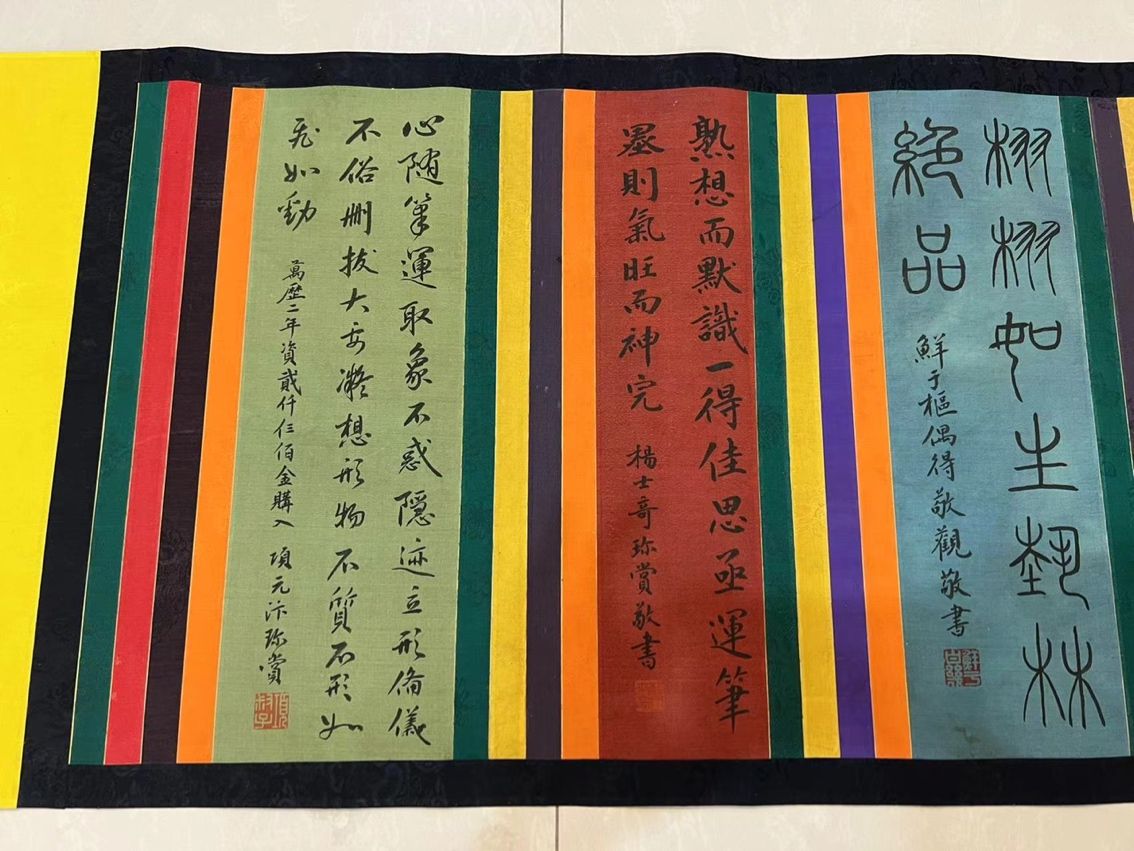 栩栩如生埶林
絕品
鮮于樞偶得敬觀敬書
熟想而默識一得佳思亟運筆
墨則氣旺而神完
楊士奇珎賞敬書
心随筆運取象不惑隱迹立形俻儀
不俗删拔大要凝想形物不質不形如
飛如動
萬歷二年資貳仟仨佰金購入 項元汴珎賞